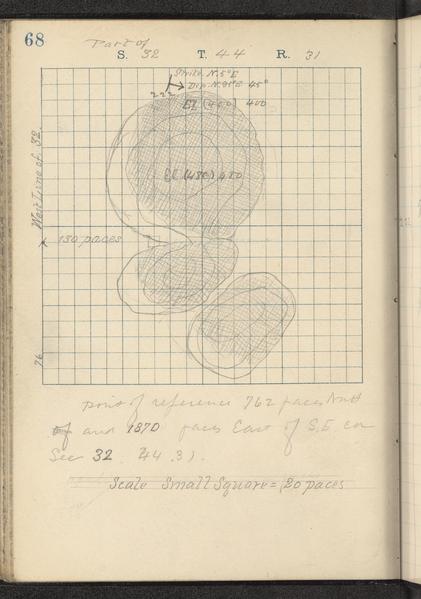 68
Part of
S. 32 T. 44 R. 31
Strike N. 5° E
Dip N. 85° E 45°
222
El (400) 400
El (430) 430
West Line of 32
130 paces
76
point of reference 762 paces North
of and 1870 paces East of S.E. cor
Sec 32 44.31.
Scale Small Square = 20 paces